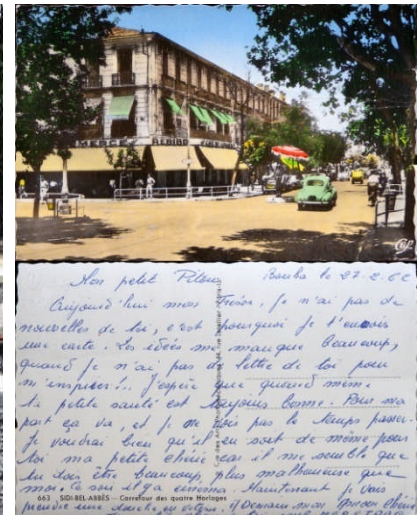 MERCE
BÉNIBA
CAP
Mon petit Pitou Bouba le 27.2.62
Aujourd'hui mon Trésor, je n'ai pas de
nouvelles de toi, c'est pourquoi je t'envois
une carte. Les idées me manque beaucoup,
quand je n'ai pas de lettre de toi pour
m'inspirer!.. J'espère que quand même
ta petite santé est toujours bonne. Pour ma
part ça va, et je ne vois pas le temps passer.
Je voudrai bien qu'il en soit de même pour
toi ma petite chérie car il me semble que
tu dois être beaucoup plus malheureuse que
moi. Ce soir il y a cinéma. Maintenant je vais
663 SIDI-BEL-ABBÈS - Carrefour des quatre Horloges
prendre une douche, en vitesse. Demain mon